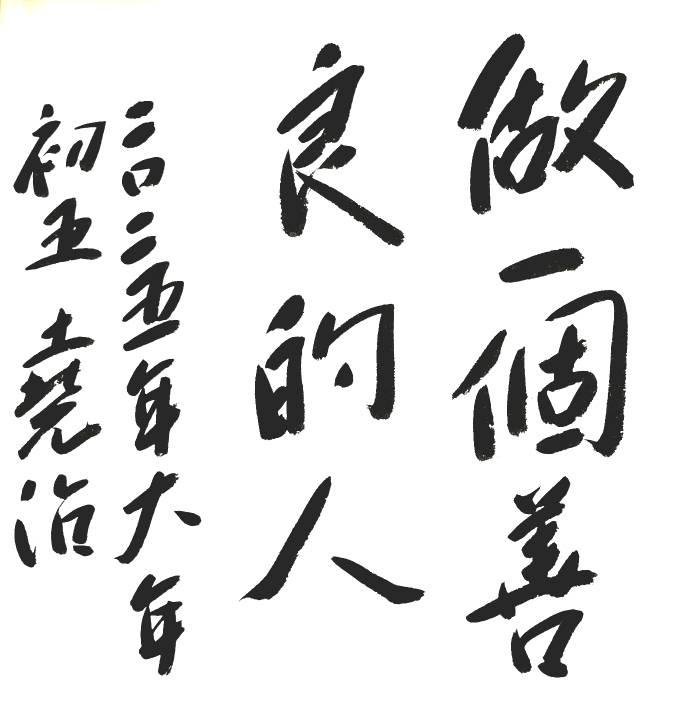 做一個善
良的人
二〇二五年大年
初五 堯治